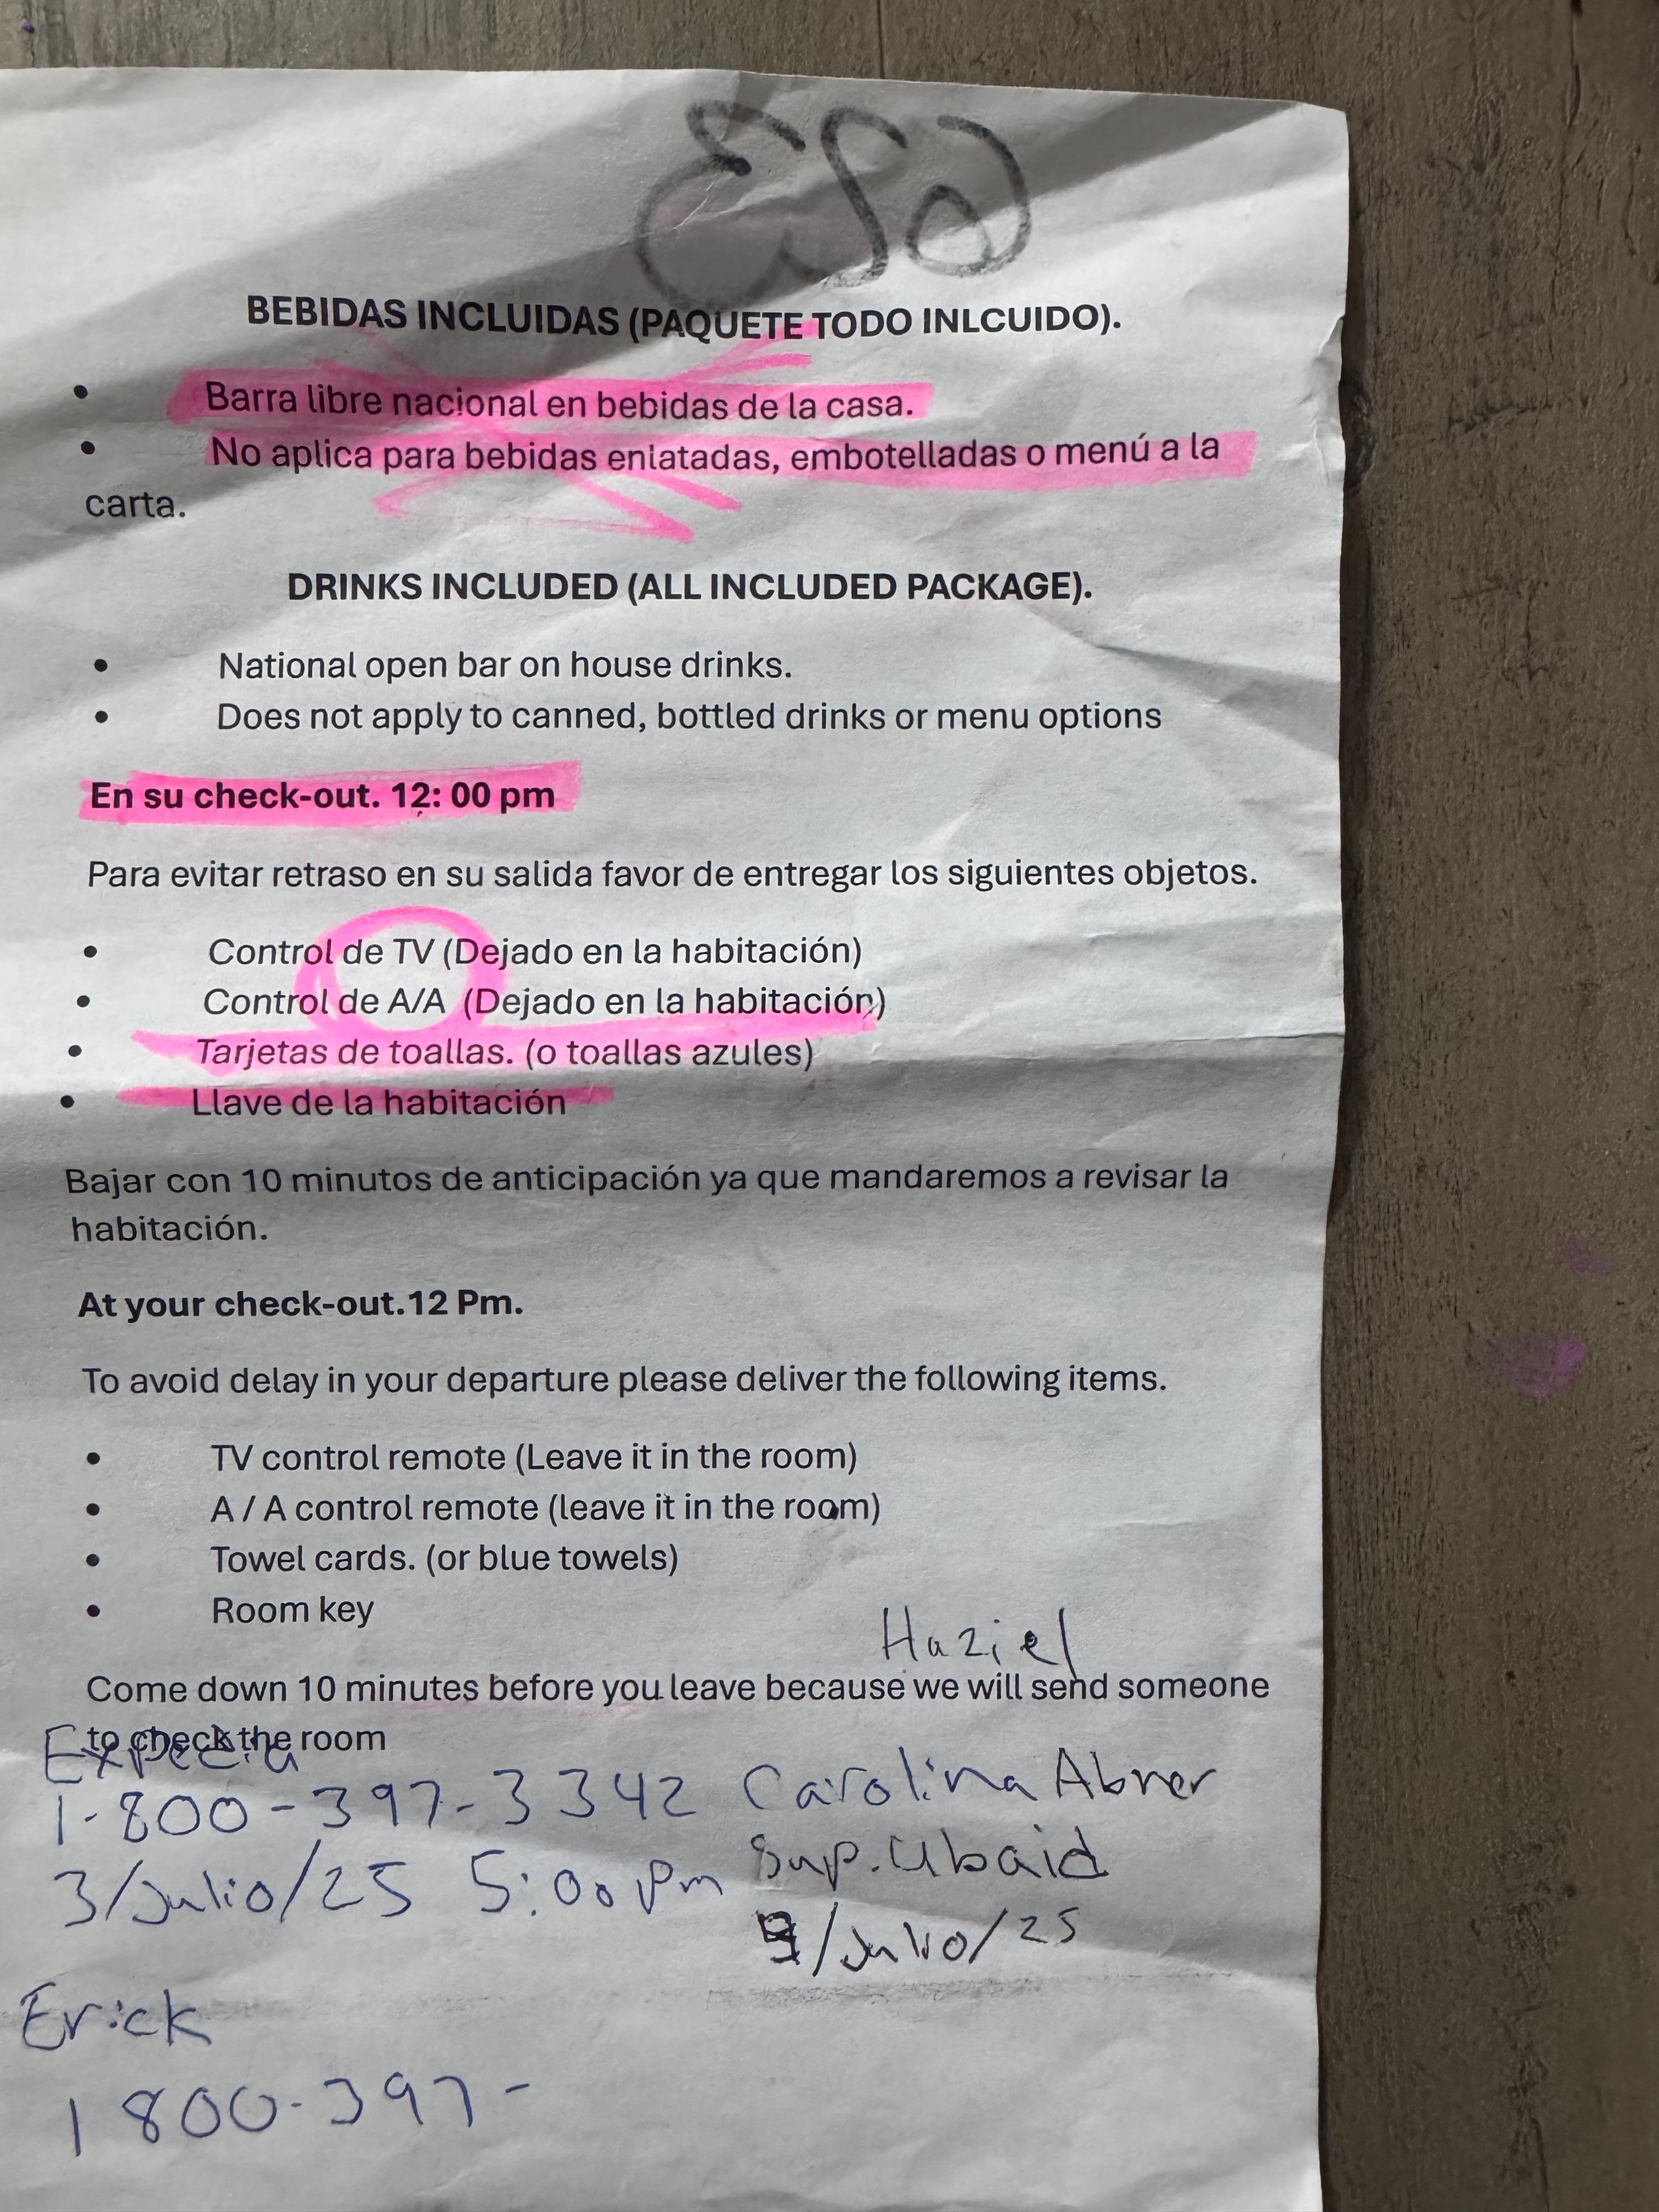 BEBIDAS INCLUIDAS (PAQUETE TODO INLCUIDO).
• Barra libre nacional en bebidas de la casa.
• No aplica para bebidas enlatadas, embotelladas o menú a la
carta.
DRINKS INCLUDED (ALL INCLUDED PACKAGE).
• National open bar on house drinks.
• Does not apply to canned, bottled drinks or menu options
En su check-out. 12: 00 pm
Para evitar retraso en su salida favor de entregar los siguientes objetos.
• Control de TV (Dejado en la habitación)
• Control de A/A (Dejado en la habitación)
• Tarjetas de toallas. (o toallas azules)
• Llave de la habitación
Bajar con 10 minutos de anticipación ya que mandaremos a revisar la
habitación.
At your check-out.12 Pm.
To avoid delay in your departure please deliver the following items.
• TV control remote (Leave it in the room)
• A / A control remote (leave it in the room)
• Towel cards. (or blue towels)
• Room key
Haziel
Come down 10 minutes before you leave because we will send someone
to check the room
Expedia
1-800-397-3342 Carolina Abner
3/Julio/25 5:00 pm Sup. Ubaid
/Julio/25
Erick
1800-397-